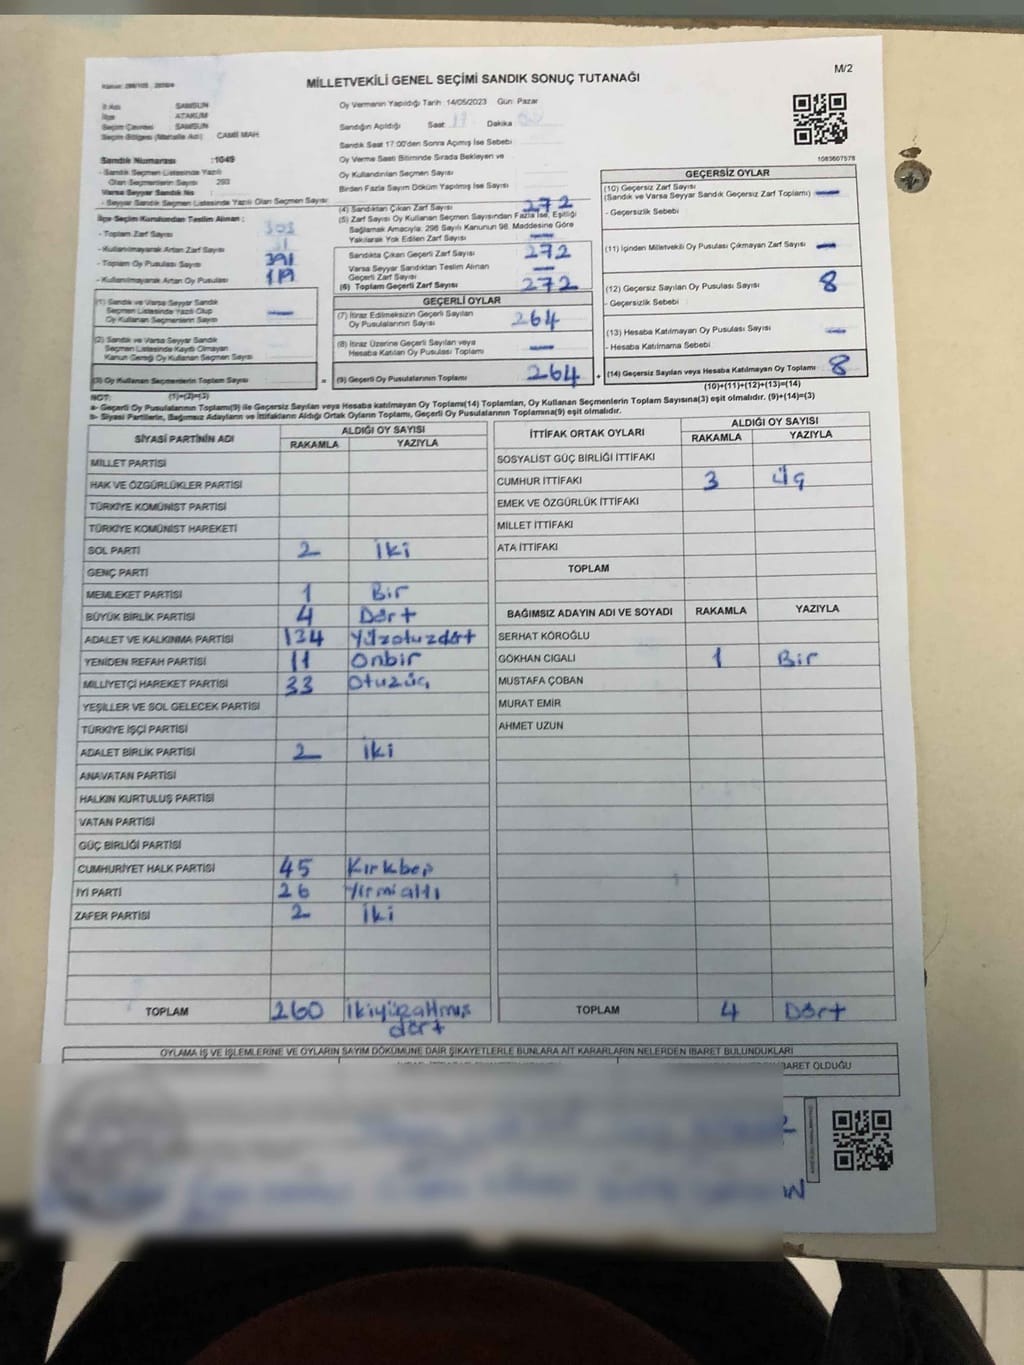 MİLLETVEKİLİ GENEL SEÇİMİ SANDIK SONUÇ TUTANAĞI
M/2
İli Adı SAMSUN
İlçe ATAKUM
Seçim Çevresi SAMSUN
Seçim Bölgesi (Mahalle Adı) CAMİİ MAH.
Sandık Numarası :1049
- Sandık Seçmen Listesinde Yazılı
Olan Seçmenlerin Sayısı
Varsa Seyyar Sandık No
- Seyyar Sandık Seçmen Listesinde Yazılı Olan Seçmen Sayısı
Oy Vermenin Yapıldığı Tarih :14/05/2023 Gün: Pazar
Sandığın Açıldığı Saat: Dakika
Sandık Saat 17:00'den Sonra Açılmış İse Sebebi
Oy Verme Saati Bitiminde Sırada Bekleyen ve
Oy Kullandırılan Seçmen Sayısı
Birden Fazla Sayım Döküm Yapılmış İse Sayısı
1083607578
İlçe Seçim Kurulundan Teslim Alınan :
- Toplam Zarf Sayısı
- Kullanılmayarak Artan Zarf Sayısı
- Toplam Oy Pusulası Sayısı 391
- Kullanılmayarak Artan Oy Pusulası 119
(1) Sandık ve Varsa Seyyar Sandık
Seçmen Listesinde Yazılı Olup
Oy Kullanan Seçmenlerin Sayısı —
(2) Sandık ve Varsa Seyyar Sandık
Seçmen Listesinde Kayıtlı Olmayan
Kanun Gereği Oy Kullanan Seçmen Sayısı
(3) Oy Kullanan Seçmenlerin Toplam Sayısı
(1)+(2)=(3)
(4) Sandıktan Çıkan Zarf Sayısı 272
(5) Zarf Sayısı Oy Kullanan Seçmen Sayısından Fazla İse, Eşitliği
Sağlamak Amacıyla; 298 Sayılı Kanunun 98. Maddesine Göre
Yakılarak Yok Edilen Zarf Sayısı —
Sandıkta Çıkan Geçerli Zarf Sayısı 272
Varsa Seyyar Sandıktan Teslim Alınan
Geçerli Zarf Sayısı —
(6) Toplam Geçerli Zarf Sayısı 272
GEÇERLİ OYLAR
(7) İtiraz Edilmeksizin Geçerli Sayılan
Oy Pusulalarının Sayısı 264
(8) İtiraz Üzerine Geçerli Sayılan veya
Hesaba Katılan Oy Pusulası Toplamı —
= (9) Geçerli Oy Pusulalarının Toplamı 264 +
GEÇERSİZ OYLAR
(10) Geçersiz Zarf Sayısı
(Sandık ve Varsa Seyyar Sandık Geçersiz Zarf Toplamı) —
- Geçersizlik Sebebi
(11) İçinden Milletvekili Oy Pusulası Çıkmayan Zarf Sayısı —
(12) Geçersiz Sayılan Oy Pusulası Sayısı 8
- Geçersizlik Sebebi
(13) Hesaba Katılmayan Oy Pusulası Sayısı —
- Hesaba Katılmama Sebebi
(14) Geçersiz Sayılan veya Hesaba Katılmayan Oy Toplamı 8
(10)+(11)+(12)+(13)=(14)
NOT:
a- Geçerli Oy Pusulalarının Toplamı(9) ile Geçersiz Sayılan veya Hesaba Katılmayan Oy Toplamı(14) Toplamları, Oy Kullanan Seçmenlerin Toplam Sayısına(3) eşit olmalıdır. (9)+(14)=(3)
b- Siyasi Partilerin, Bağımsız Adayların ve İttifakların Aldığı Ortak Oyların Toplamı, Geçerli Oy Pusulalarının Toplamına(9) eşit olmalıdır.
SİYASİ PARTİNİN ADI ALDIĞI OY SAYISI
RAKAMLA YAZIYLA
MİLLET PARTİSİ
HAK VE ÖZGÜRLÜKLER PARTİSİ
TÜRKİYE KOMÜNİST PARTİSİ
TÜRKİYE KOMÜNİST HAREKETİ
SOL PARTİ 2 İki
GENÇ PARTİ
MEMLEKET PARTİSİ 1 Bir
BÜYÜK BİRLİK PARTİSİ 4 Dört
ADALET VE KALKINMA PARTİSİ 134 Yüzotuzdört
YENİDEN REFAH PARTİSİ 11 Onbir
MİLLİYETÇİ HAREKET PARTİSİ 33 Otuzüç
YEŞİLLER VE SOL GELECEK PARTİSİ
TÜRKİYE İŞÇİ PARTİSİ
ADALET BİRLİK PARTİSİ 2 İki
ANAVATAN PARTİSİ
HALKIN KURTULUŞ PARTİSİ
VATAN PARTİSİ
GÜÇ BİRLİĞİ PARTİSİ
CUMHURİYET HALK PARTİSİ 45 Kırkbeş
İYİ PARTİ 26 Yirmialtı
ZAFER PARTİSİ 2 İki
TOPLAM 260 İkiyüzaltmış
dört
İTTİFAK ORTAK OYLARI ALDIĞI OY SAYISI
RAKAMLA YAZIYLA
SOSYALİST GÜÇ BİRLİĞİ İTTİFAKI
CUMHUR İTTİFAKI 3 Üç
EMEK VE ÖZGÜRLÜK İTTİFAKI
MİLLET İTTİFAKI
ATA İTTİFAKI
TOPLAM
BAĞIMSIZ ADAYIN ADI VE SOYADI RAKAMLA YAZIYLA
SERHAT KÖROĞLU
GÖKHAN CIGALI 1 Bir
MUSTAFA ÇOBAN
MURAT EMİR
AHMET UZUN
TOPLAM 4 Dört
OYLAMA İŞ VE İŞLEMLERİNE VE OYLARIN SAYIM DÖKÜMÜNE DAİR ŞİKAYETLERLE BUNLARA AİT KARARLARIN NELERDEN İBARET BULUNDUKLARI
İBARET OLDUĞU